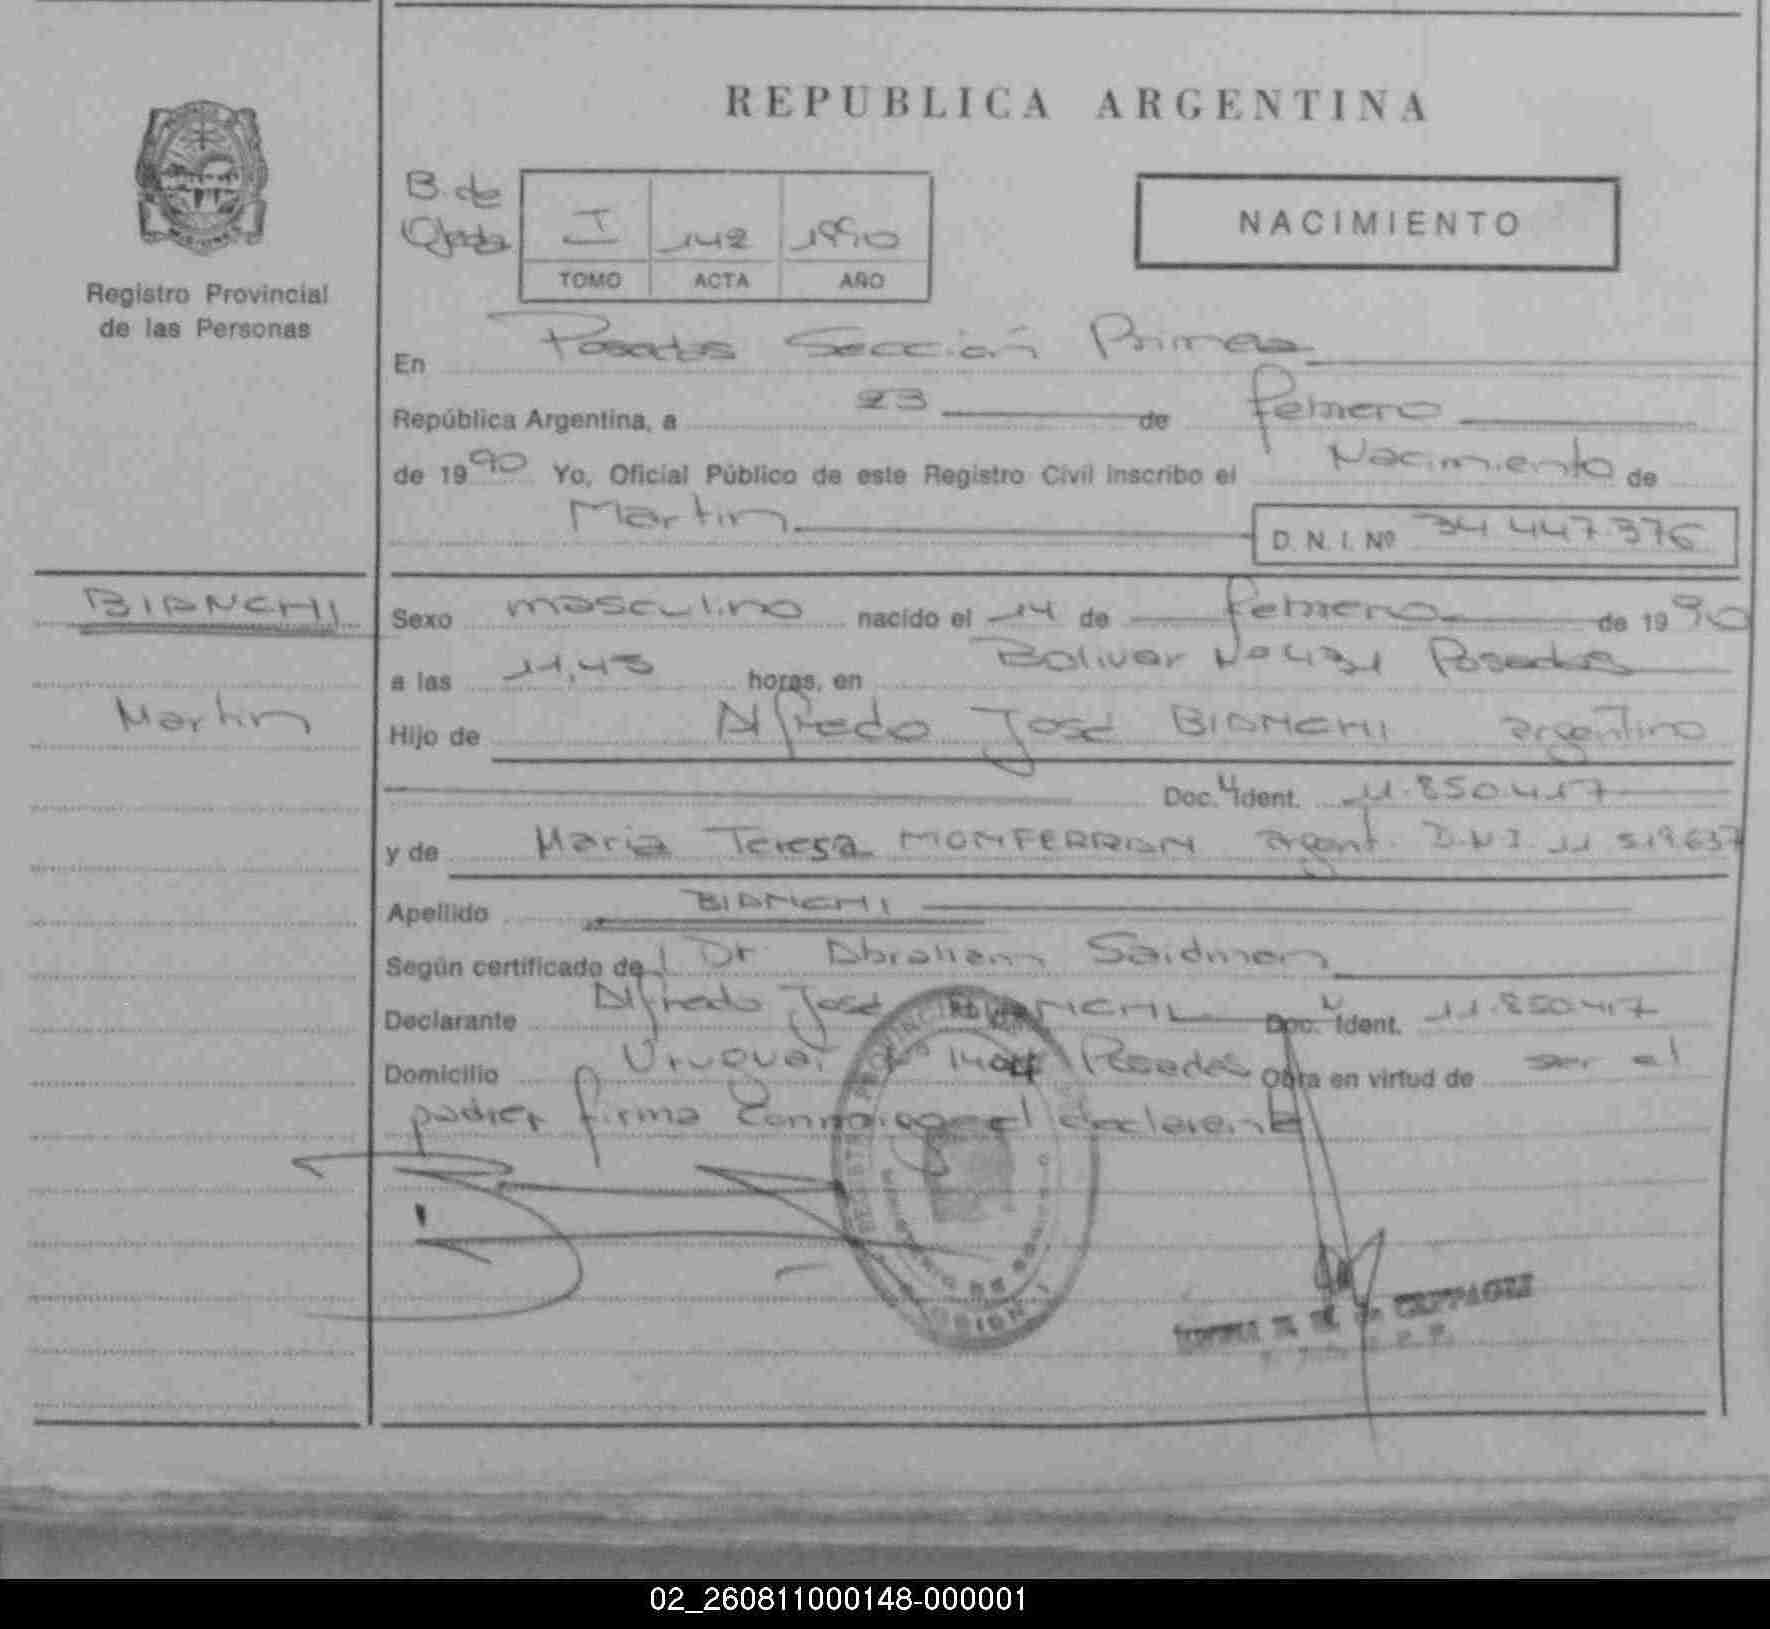 REPUBLICA ARGENTINA
Registro Provincial
de las Personas
B. de
I 142 1990
TOMO ACTA AÑO
NACIMIENTO
En Posadas Sección Primera
República Argentina, a 23 de febrero
de 1990 Yo, Oficial Público de este Registro Civil inscribo el Nacimiento de
Martin D. N. I. Nº 34 447.376
BIANCHI
Martin
Sexo masculino nacido el 14 de febrero de 1990
a las 11,45 horas, en Bolivar Nº 431 Posadas
Hijo de Alfredo José BIANCHI argentino
Doc. Ident. 11.850.417
y de Maria Teresa MONFERRAN argent. D.N.I. 11 519.637
Apellido BIANCHI
Según certificado del Dr Abraham Saidman
Declarante Alfredo José BIANCHI Doc. Ident. 11.850.417
Domicilio Uruguai Posadas Obra en virtud de ser el
padre, firma conmigo el declarante
02_260811000148-000001